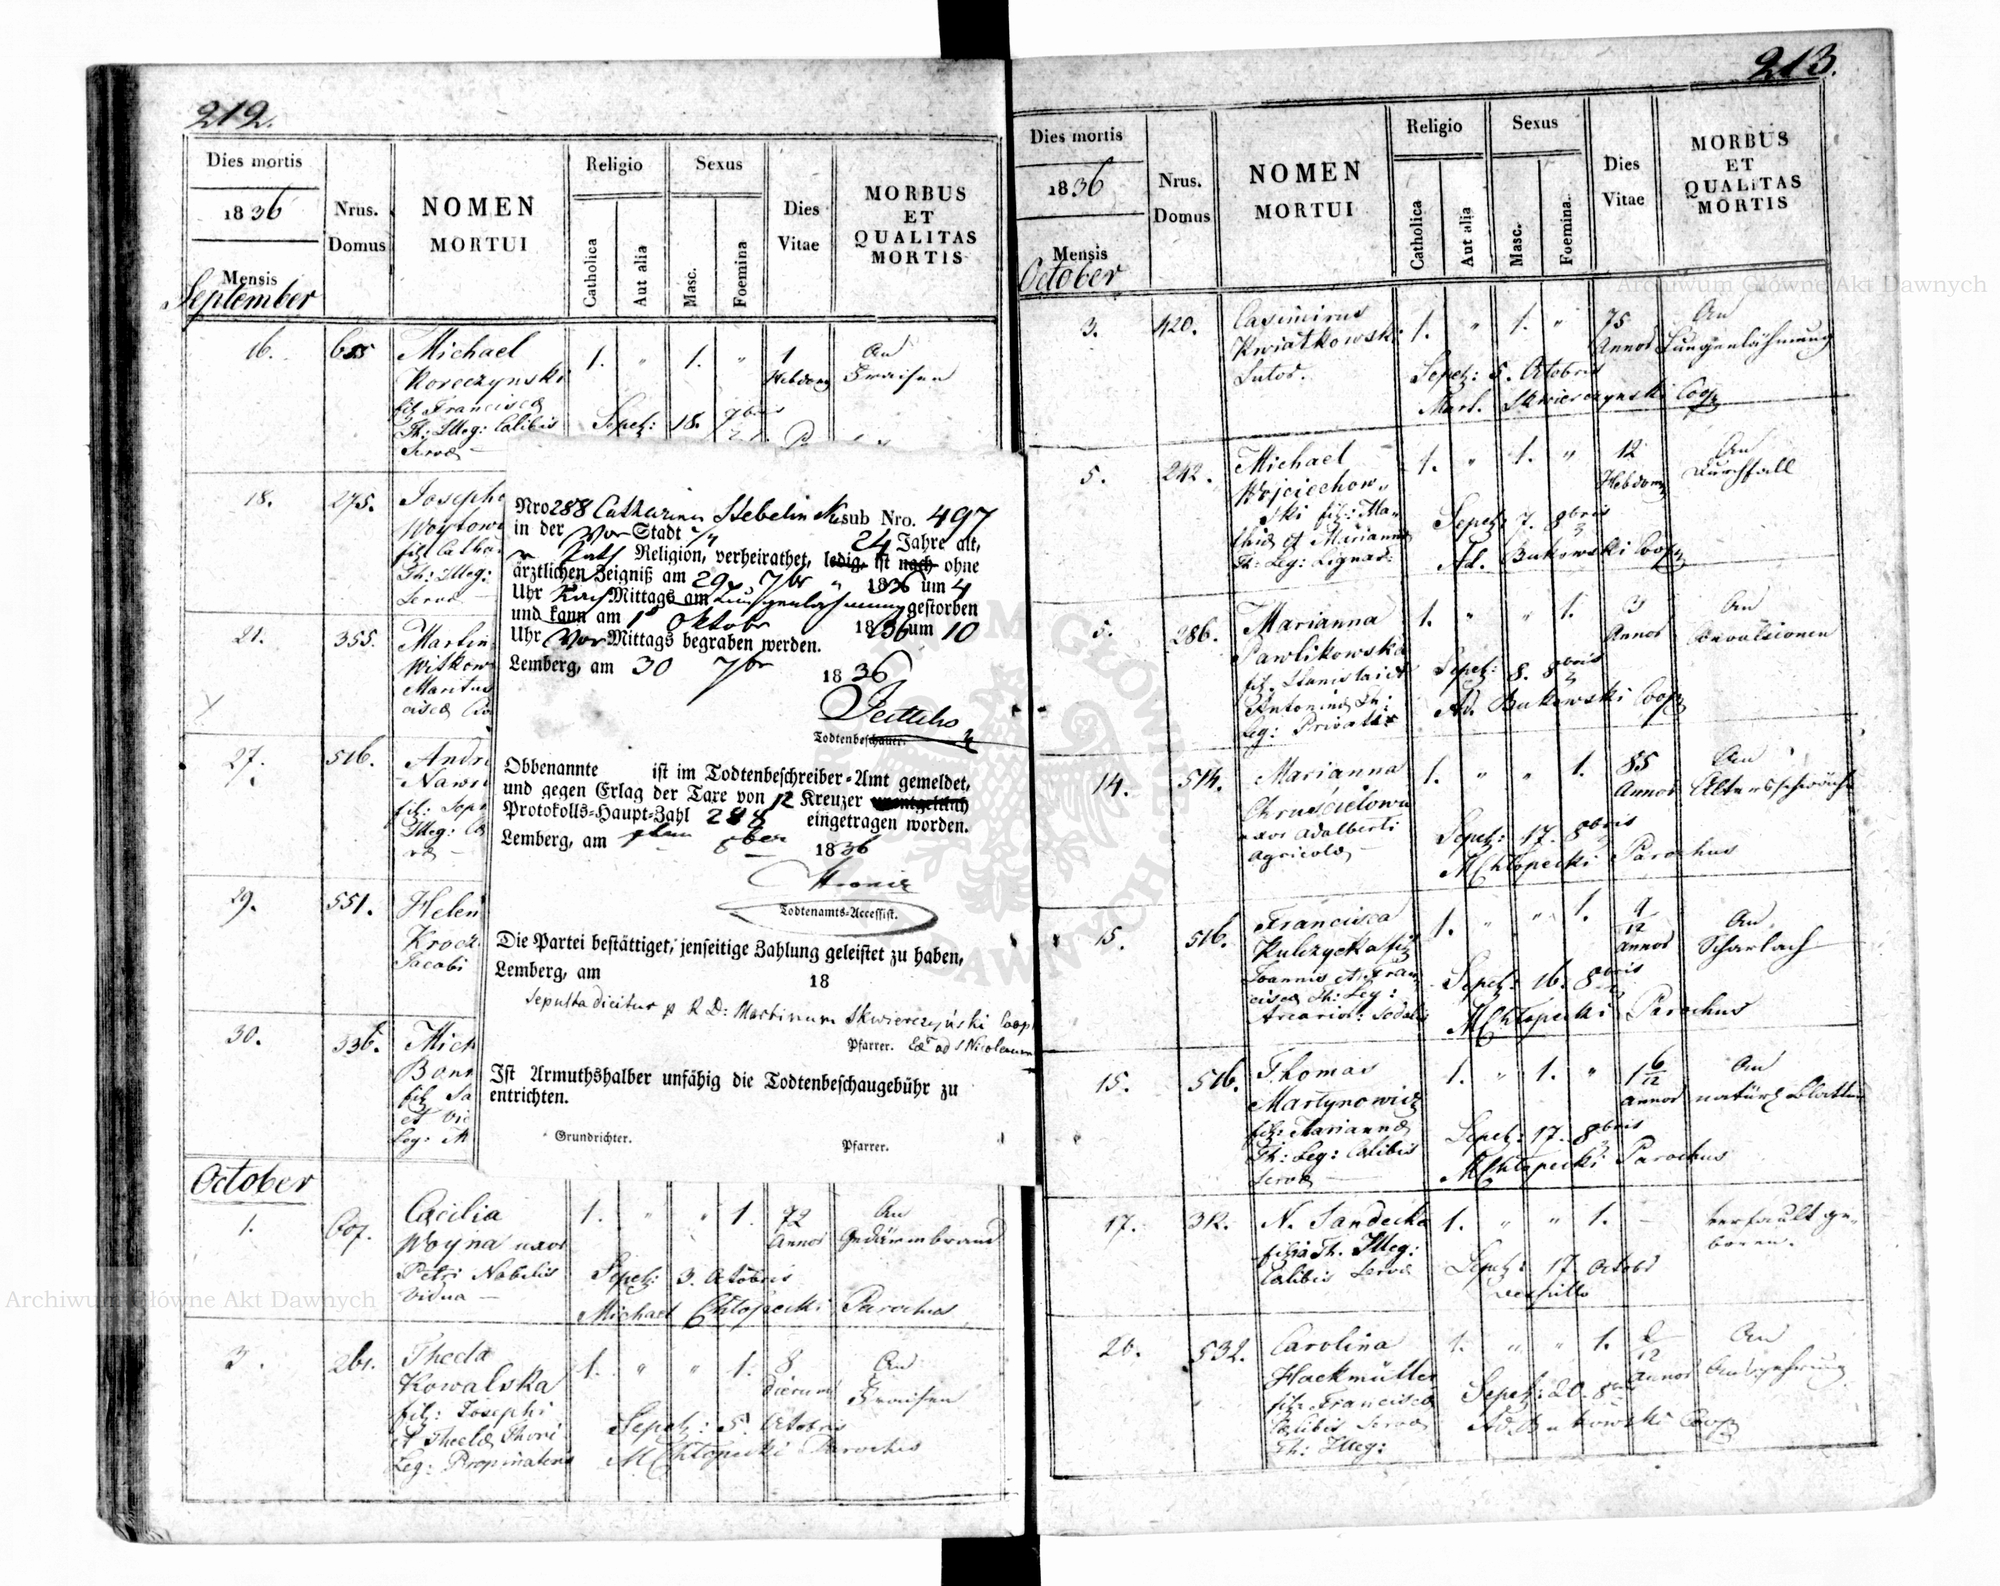 212.
Dies mortis
1836
Mensis
September
Nrus.
Domus
NOMEN
MORTUI
Religio
Catholica
Aut alia
Sexus
Masc.
Foemina
Dies
Vitae
MORBUS
ET
QUALITAS
MORTIS
16. 655 Michael 1. " 1. " 1 An
Koreczynski Hebdom Fraisen
fil: Francisca
Th: Illeg: Calibis Sepel: 18. 7bris
Servae
18. 275. Josephu
Woytow
fil: Catha
Th: Illeg:
Servae
21. 355. Martin
Witkow
Maritus
27. 516. Andr
Nawr
Illeg:
29. 551. Helen
Krocz
Jacobi
30. 336. Mich
Bonn
et Vic
Leg:
Nro 288 Catharina Stebelinska sub Nro. 497
in der Vor Stadt 24 Jahre alt,
r. Kath Religion, verheirathet, ledig, ist nach ohne
ärztlichen Zeigniß am 29 7br 1836 um 4
Uhr Nach Mittags am Lungenlähmung gestorben
und kann am 1 Oktobr 1836 um 10
Uhr Vor Mittags begraben werden.
Lemberg, am 30 7br 1836
Todtenbeschauer.
Obbenannte ist im Todtenbeschreiber-Amt gemeldet,
und gegen Erlag der Taxe von 12 Kreuzer unentgeltlich
Protokolls-Haupt-Zahl 288 eingetragen worden.
Lemberg, am 8ber 1836
Todtenamts-Accessist.
Die Partei bestättiget, jenseitige Zahlung geleistet zu haben,
Lemberg, am 18
Sepulta dicitur p R D: Martinum Skwierczyński Coop
Pfarrer. ad S Nicolaum
Ist Armuthshalber unfähig die Todtenbeschaugebühr zu
entrichten.
Grundrichter. Pfarrer.
October
1. 607. Cäcilia 1. " " 1. 72 An
Woyna uxor Annos Gedärmbrand
Petri Nobilis Sepel: 3. Octobris
Vidua Michael Chłopecki Parochus
3. 261. Thecla 1. " " 1. 8 An
Kowalska dierum Fraisen
fil: Josephi Sepel: 5. Octobris
et Theclae Thori MChłopecki Parochus
Leg: Propinatoris
213.
Dies mortis
1836
Mensis
October
Nrus.
Domus
NOMEN
MORTUI
Religio
Catholica
Aut alia
Sexus
Masc.
Foemina.
Dies
Vitae
MORBUS
ET
QUALITAS
MORTIS
3. 420. Casimirus 1. " 1. " 75 An
Kwiatkowski Annos Lungenlähmung
Sutor. Sepel: 5. Octobris
Mart. Skwierczynski Coop
5. 242. Michael 1. " 1. " 12 An
Wojciechow- Hebdom Durchfall
ski fil: Ma- Sepel: 7. 8bris
thiae et Marianna
Th: Leg: Lignar: Ad. Bukowski Coop
5. 286. Marianna 1. " " 1. 3 An
Pawlikowska Annos Convulsionen
fil. Stanislai et Sepel: 8. 8bris
Antoninae Th: Ad. Bukowski Coop
Leg: Privatis
14. 514. Marianna 1. " " 1. 85 An
Chruścielowa Annos Altersschwäche
uxor Adalberti Sepel: 17. 8bris
agricolae MChłopecki Parochus
15. 516. Francisca 1. " " 1. 9/12 An
Kulczycka fil: annos Scharlach
Joannis et Fran Sepel: 16. 8bris
ciscae Th: Leg: MChłopecki Parochus
Arcariae: Sodalis
15. 516. Thomas 1. " 1. " 1 6/12 An
Martynowicz Annos natürl Blattern
fil: Mariannae Sepel: 17. 8bris
Th: Leg: Calibis MChłopecki Parochus
Servae
17. 312. N. Sandecka 1. " " 1. - Verfault ge-
filia Th. Illeg: boren.
Calibis Servae Sepel: 17. Octobr
vespillo
26. 532. Carolina 1. " " 1. An
Hackmüller Annos Auszehrung
fil: Francisca Sepel: 20. 8bris
Calibis Servae Ad. Bukowski Coop
Th: Illeg:
Archiwum Główne Akt Dawnych
Archiwum Główne Akt Dawnych
ARCHIWUM GŁÓWNE AKT DAWNYCH